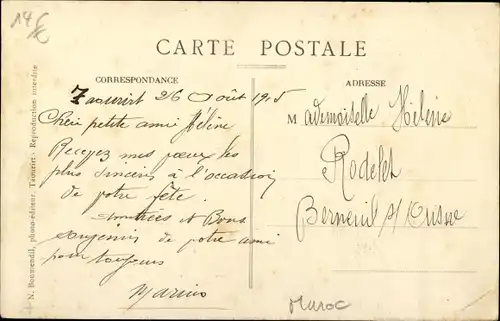 14 €
CARTE POSTALE
CORRESPONDANCE
ADRESSE
Taourirt 26 Août 1915
Cheri petite ami Hélène
Recevez mes vœux les
plus sincères à l'occasion
de votre fête.
Amitiés et Bons
souvenirs de votre ami
pour toujours
Marius
Mademoiselle Hélène
Rodelet
Berneuil s/
Maroc
N. Boumendil, photo-éditeur, Taourirt - Reproduction interdite